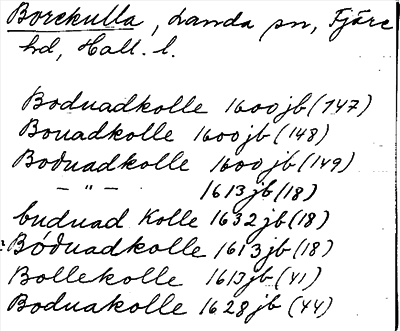 Borekulla, Landa sn, Fjäre
hd, Hall. l.
Boduadkolle 1600 jb (147)
Bouadkolle 1600 jb (148)
Boduadkolle 1600 jb (149)
— " — 1613 jb (18)
buduad Kolle 1632 jb (18)
Bóduadkolle 1613 jb (18)
Bollekolle 1613 jb (41)
Boduakolle 1628 jb (44)